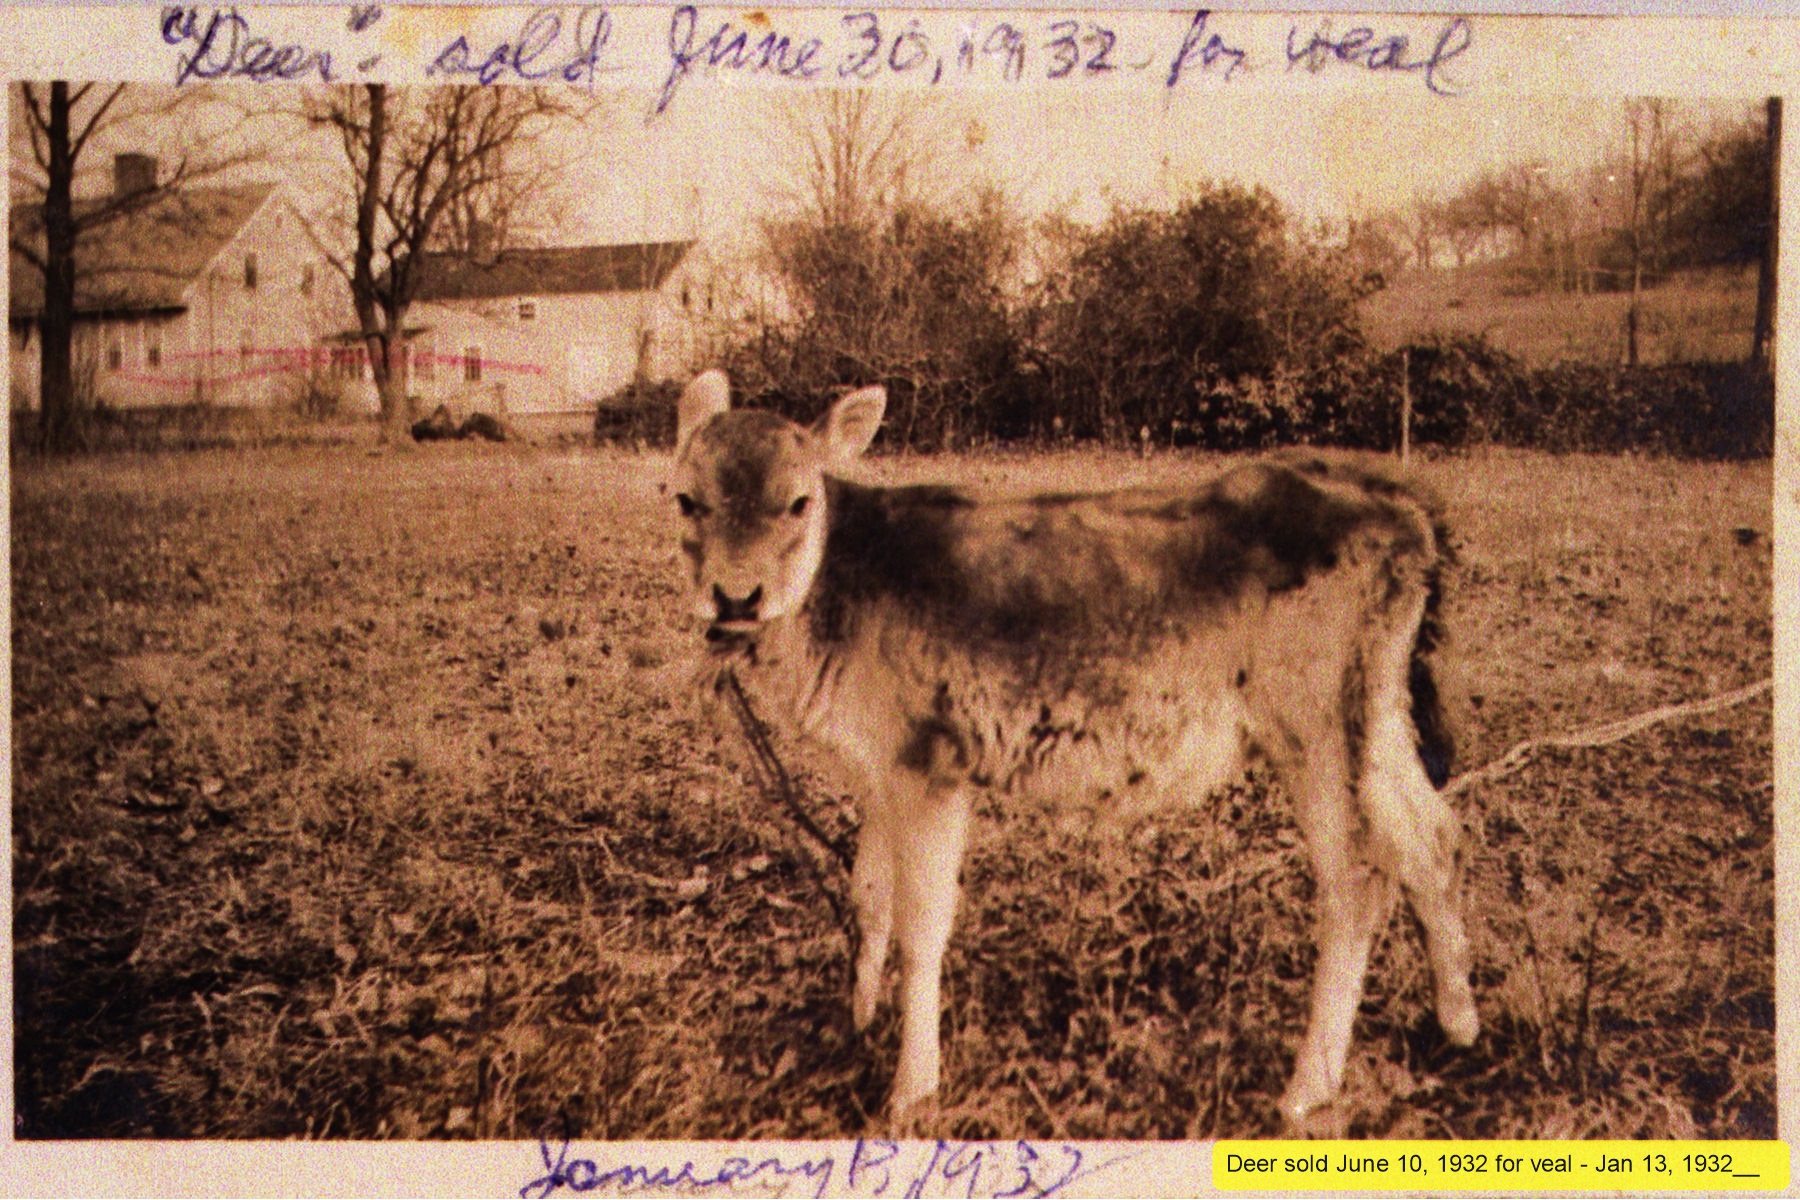 "Deer" - sold June 30, 1932 - for veal
January 13, 1932
Deer sold June 10, 1932 for veal - Jan 13, 1932__